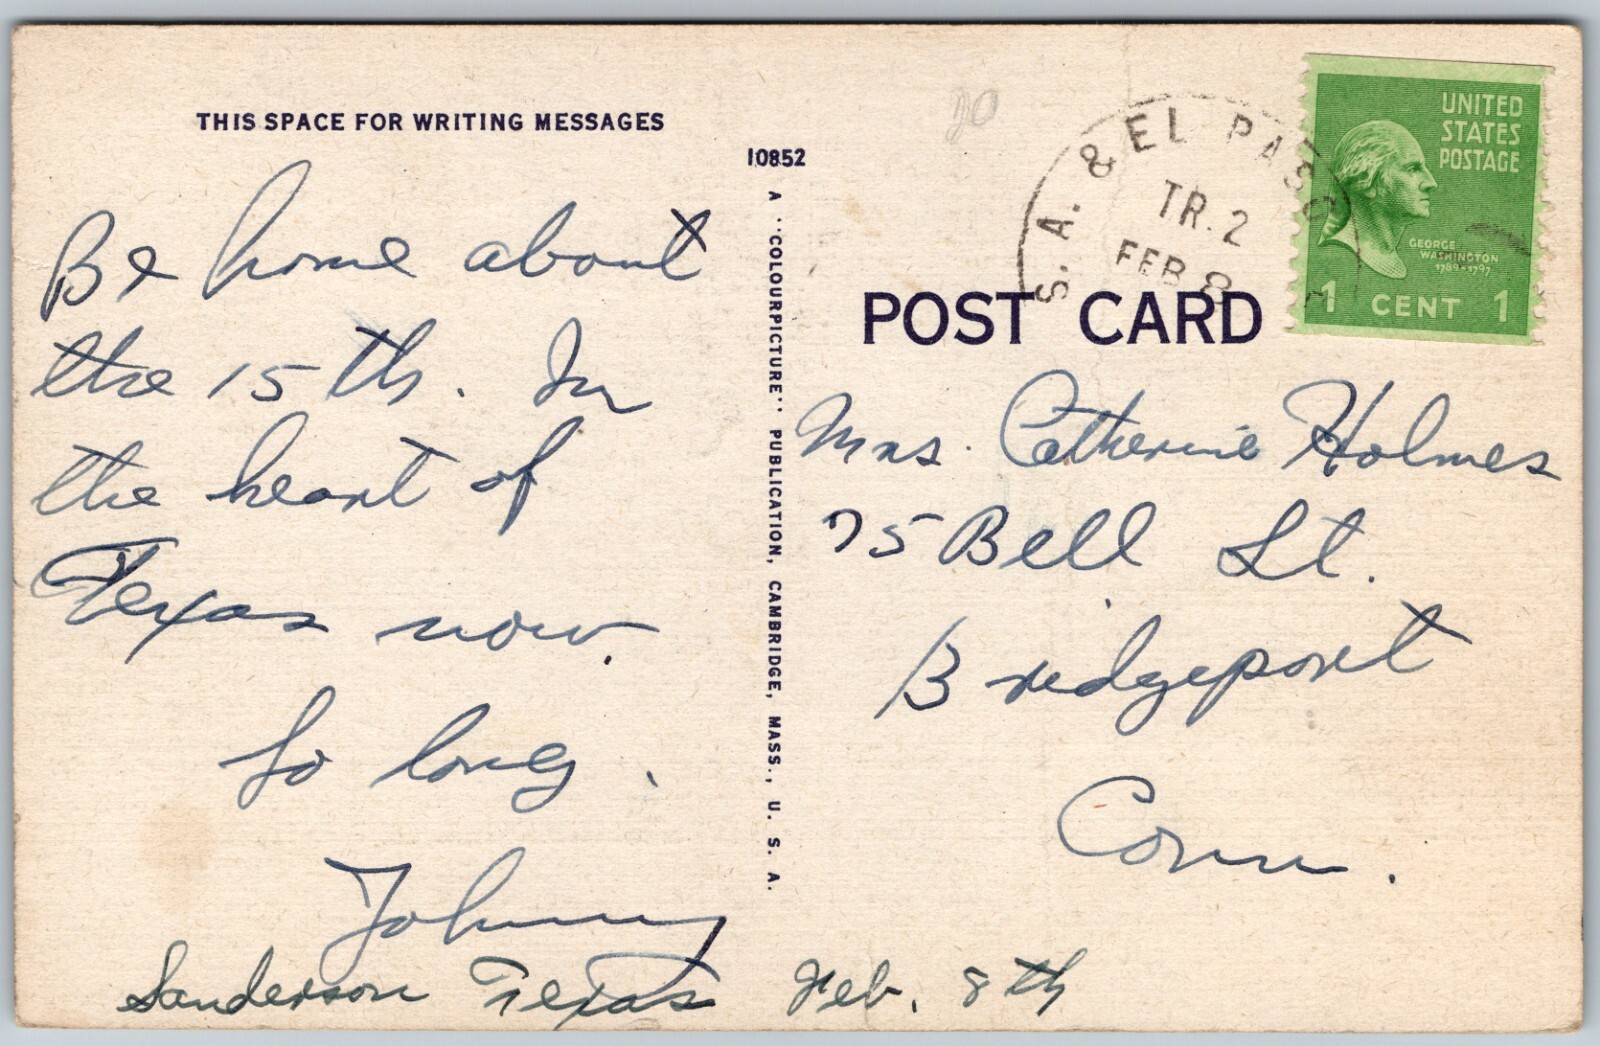 THIS SPACE FOR WRITING MESSAGES
Be home about
the 15th. In
the heart of
Texas now.
So long.
Johnny
Sanderson Texas Feb. 8th
10852
A "COLOURPICTURE" PUBLICATION, CAMBRIDGE, MASS., U. S. A.
20
S. A. & EL PASO
TR. 2
FEB 8
UNITED
STATES
POSTAGE
GEORGE
WASHINGTON
1789-1797
1 CENT 1
POST CARD
Mrs. Catherine Holmes
75 Bell St.
Bridgeport
Conn.